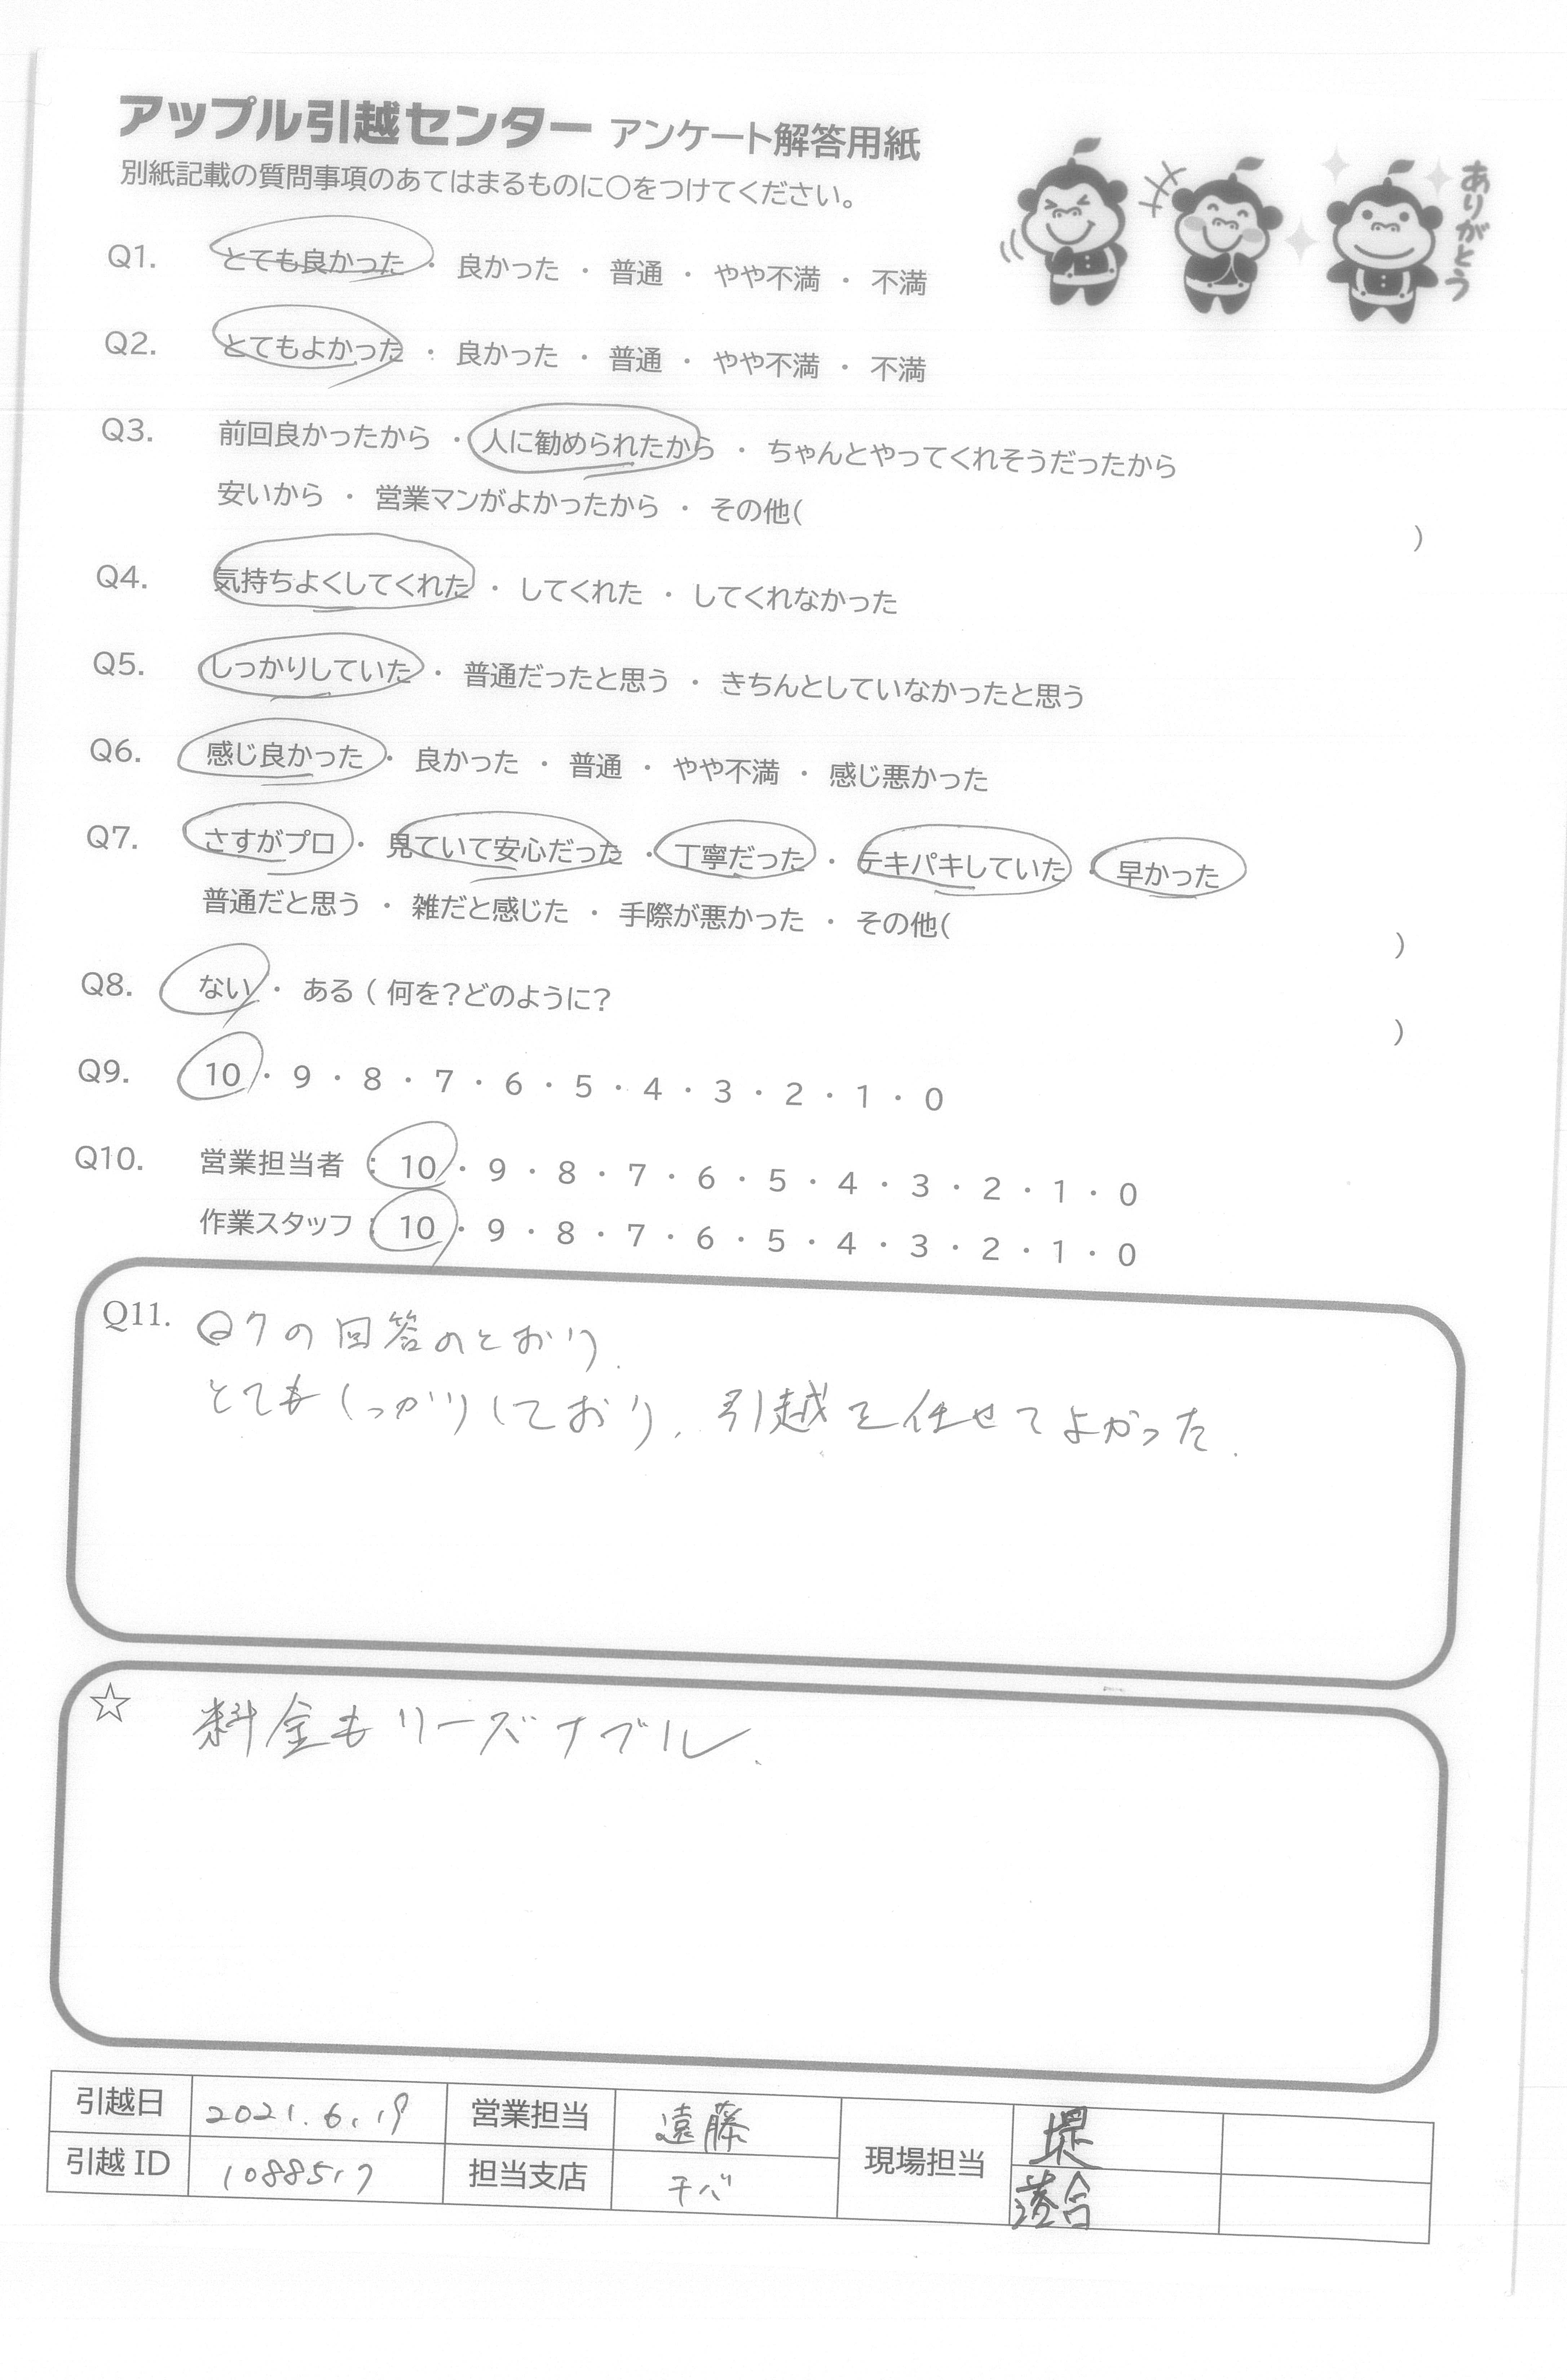 アップル引越センター アンケート解答用紙
別紙記載の質問事項のあてはまるものに○をつけてください。
ありがとう
Q1. とても良かった ・ 良かった ・ 普通 ・ やや不満 ・ 不満
Q2. とてもよかった ・ 良かった ・ 普通 ・ やや不満 ・ 不満
Q3. 前回良かったから ・ 人に勧められたから ・ ちゃんとやってくれそうだったから
安いから ・ 営業マンがよかったから ・ その他( )
Q4. 気持ちよくしてくれた ・ してくれた ・ してくれなかった
Q5. しっかりしていた ・ 普通だったと思う ・ きちんとしていなかったと思う
Q6. 感じ良かった ・ 良かった ・ 普通 ・ やや不満 ・ 感じ悪かった
Q7. さすがプロ ・ 見ていて安心だった ・ 丁寧だった ・ テキパキしていた ・ 早かった
普通だと思う ・ 雑だと感じた ・ 手際が悪かった ・ その他( )
Q8. ない ・ ある ( 何を?どのように? )
Q9. 10 ・ 9 ・ 8 ・ 7 ・ 6 ・ 5 ・ 4 ・ 3 ・ 2 ・ 1 ・ 0
Q10. 営業担当者 : 10 ・ 9 ・ 8 ・ 7 ・ 6 ・ 5 ・ 4 ・ 3 ・ 2 ・ 1 ・ 0
作業スタッフ : 10 ・ 9 ・ 8 ・ 7 ・ 6 ・ 5 ・ 4 ・ 3 ・ 2 ・ 1 ・ 0
Q11. Q7の回答のとおり.
とてもしっかりしており、引越を任せてよかった.
☆ 料金もリーズナブル.
引越日 2021.6.19 営業担当 遠藤 現場担当 堤
引越 ID 1088517 担当支店 千バ 落合